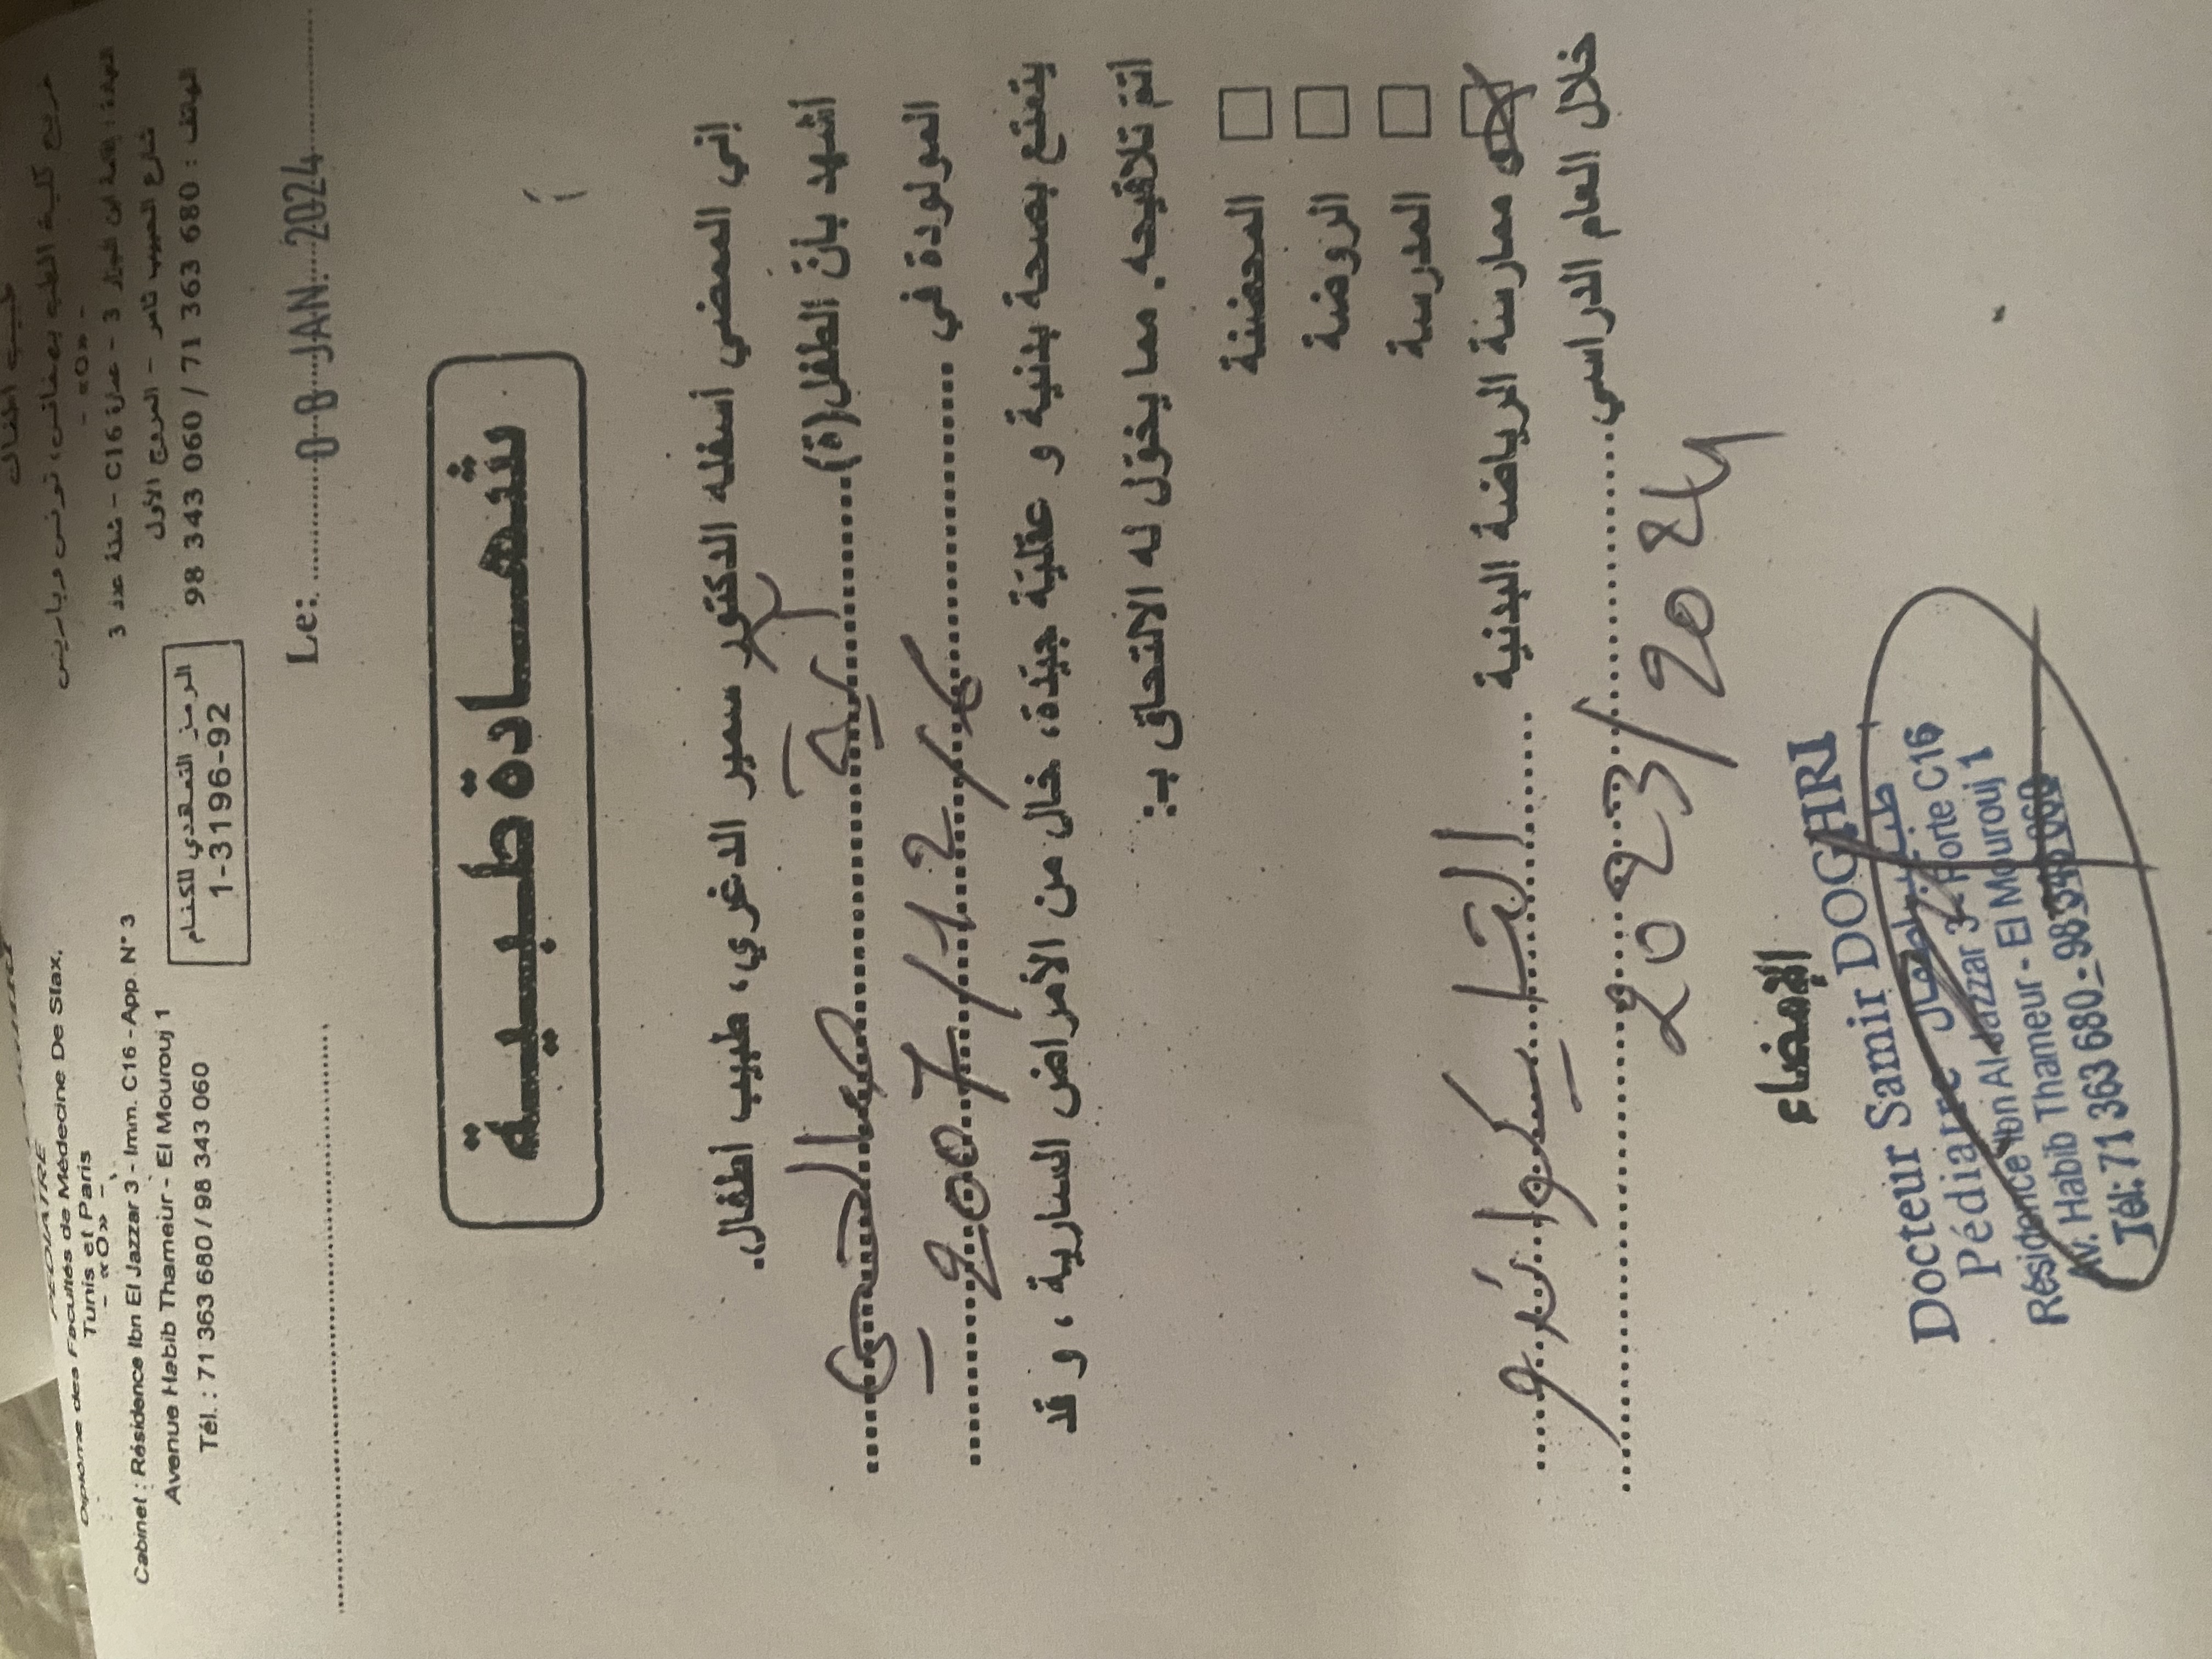 PEDIATRE
Diplome des Facultés de Médecine De Sfax,
Tunis et Paris
- «O» -
Cabinet : Résidence Ibn El Jazzar 3 - Imm. C16 - App. N° 3
Avenue Habib Thameur - El Mourouj 1
Tél. : 71 363 680 / 98 343 060
طبيب أطفال
خريج كلية الطب بصفاقس، تونس وباريس
- «O» -
العيادة : إقامة ابن الجزار 3 - عمارة C16 - شقة عدد 3
شارع الحبيب ثامر - المروج الأول
الهاتف : 71 363 680 / 98 343 060
الرمز التعهدي للكنام
1-3196-92
Le: 08 JAN. 2024
شهادة طبية
إني الممضي أسفله الدكتور سمير الدغري، طبيب أطفال.
أشهد بأن الطفل(ة)
المولودة في 2007/12/
يتمتع بصحة بدنية و عقلية جيّدة، خال من الأمراض السارية ، و قد
أتمّ تلاقيحه. مما يخوّل له الالتحاق بـ:
المحضنة
الروضة
المدرسة
ممارسة الرياضة البدنية التايكواندو
خلال العام الدراسي 2023/2024
الإمضاء
Docteur Samir DOGHRI
Pédiatre طبيب أطفال
Résidence Ibn Al Jazzar 3 - Porte C16
Av. Habib Thameur - El Mourouj 1
Tél: 71 363 680 - 98 343 060